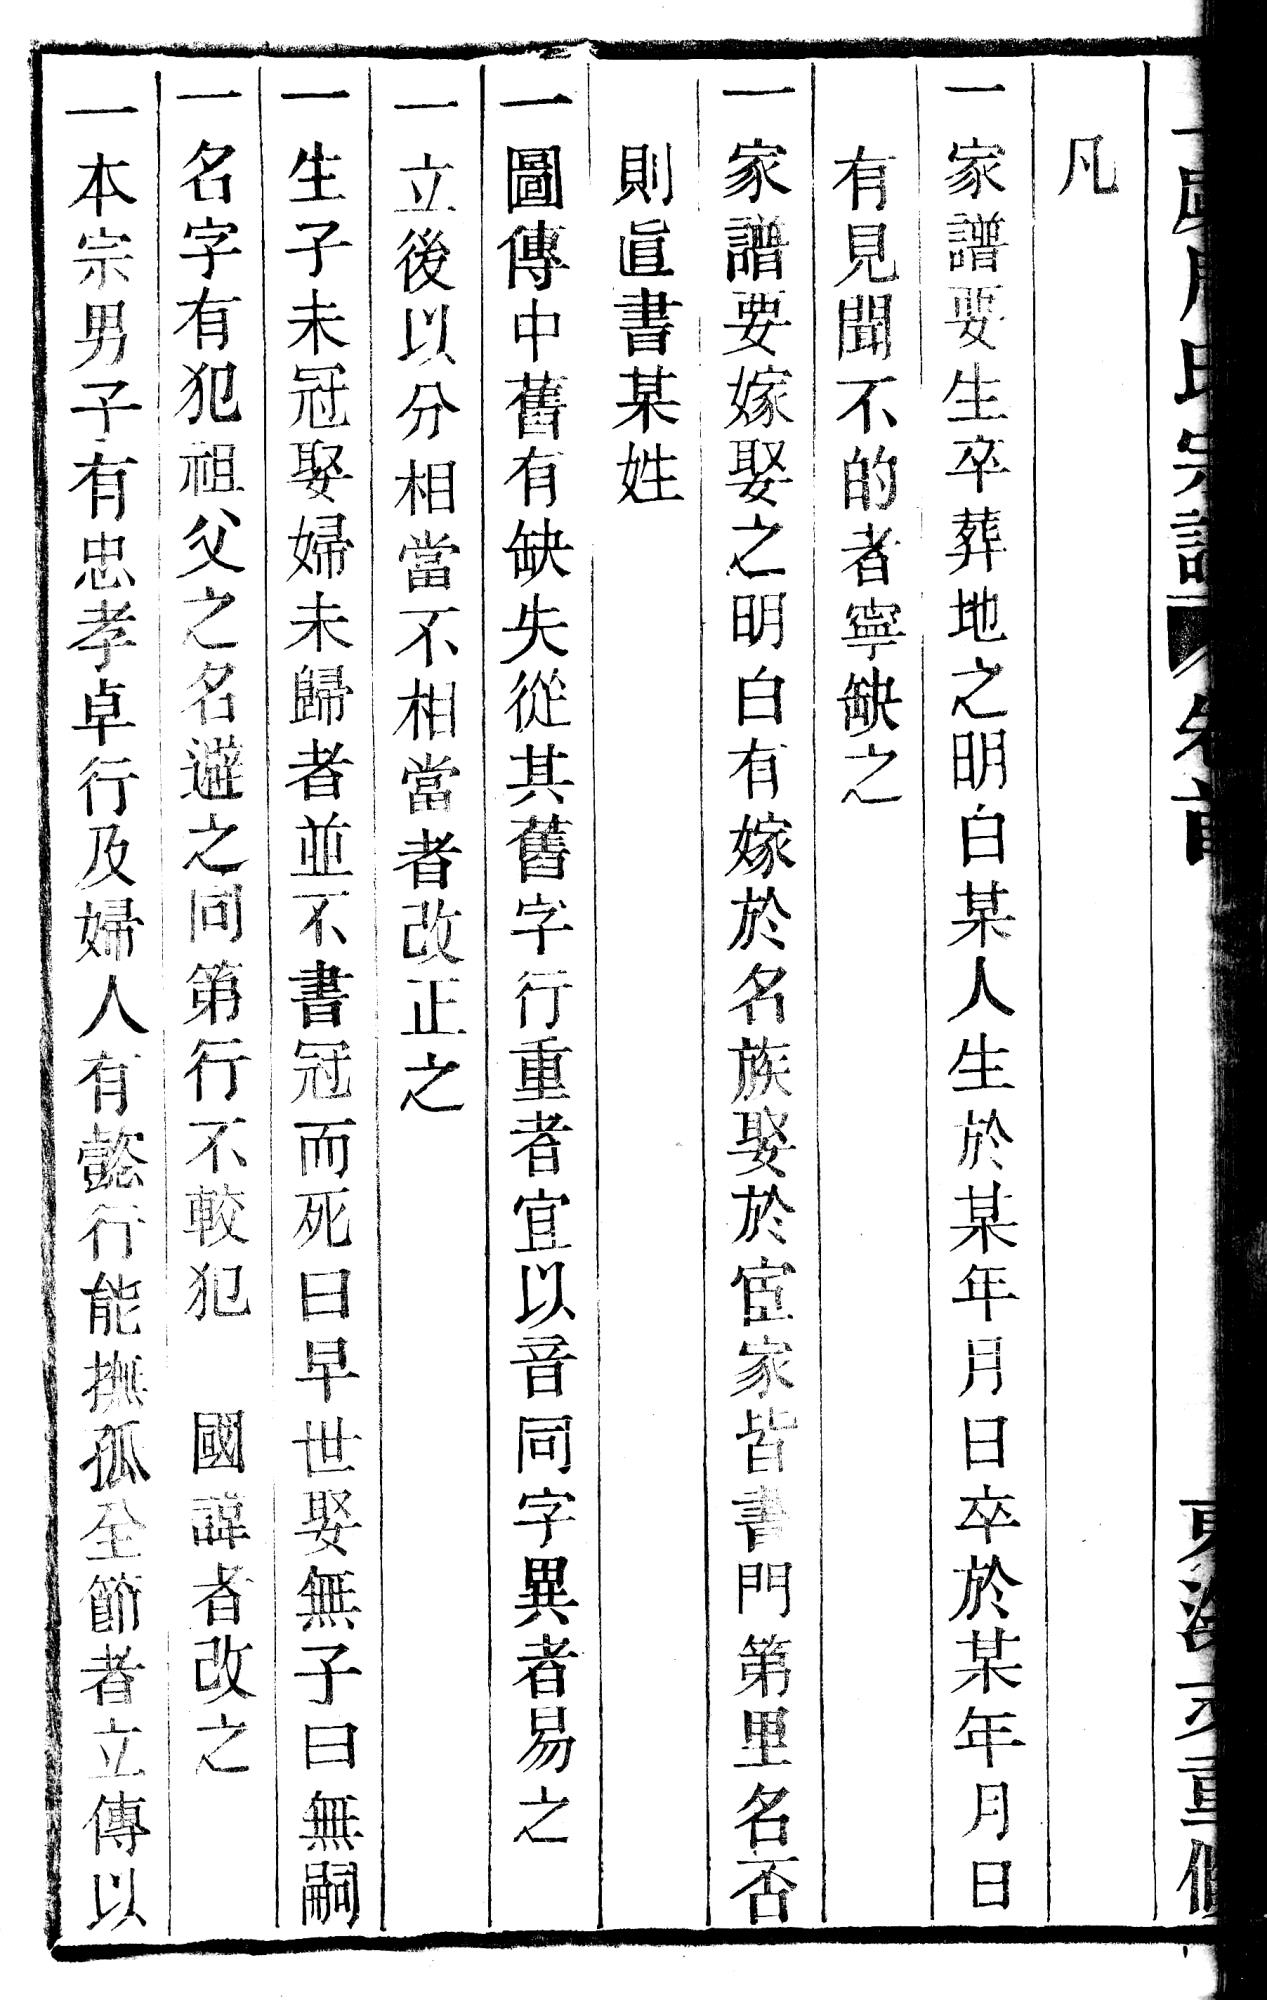 氏宗譜 卷首 重修
凡
一家譜要生卒葬地之明白某人生於某年月日卒於某年月日
有見聞不的者寧缺之
一家譜要嫁娶之明白有嫁於名族娶於宦家皆書門第里名否
則眞書某姓
一圖傳中舊有缺失從其舊字行重者宜以音同字異者易之
一立後以分相當不相當者改正之
一生子未冠娶婦未歸者並不書冠而死曰早世娶無子曰無嗣
一名字有犯祖父之名避之同第行不較犯 國諱者改之
一本宗男子有忠孝卓行及婦人有懿行能撫孤全節者立傳以